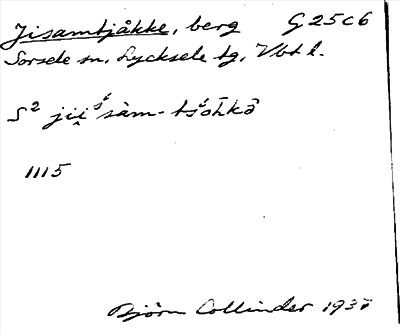 Jisamtjåkke, berg G 25 C 6
Sorsele sn, Lycksele tg, Vbt l.
S² jii̭ˢ́sàm-tśŏhkə̂
1115
Björn Collinder 1937